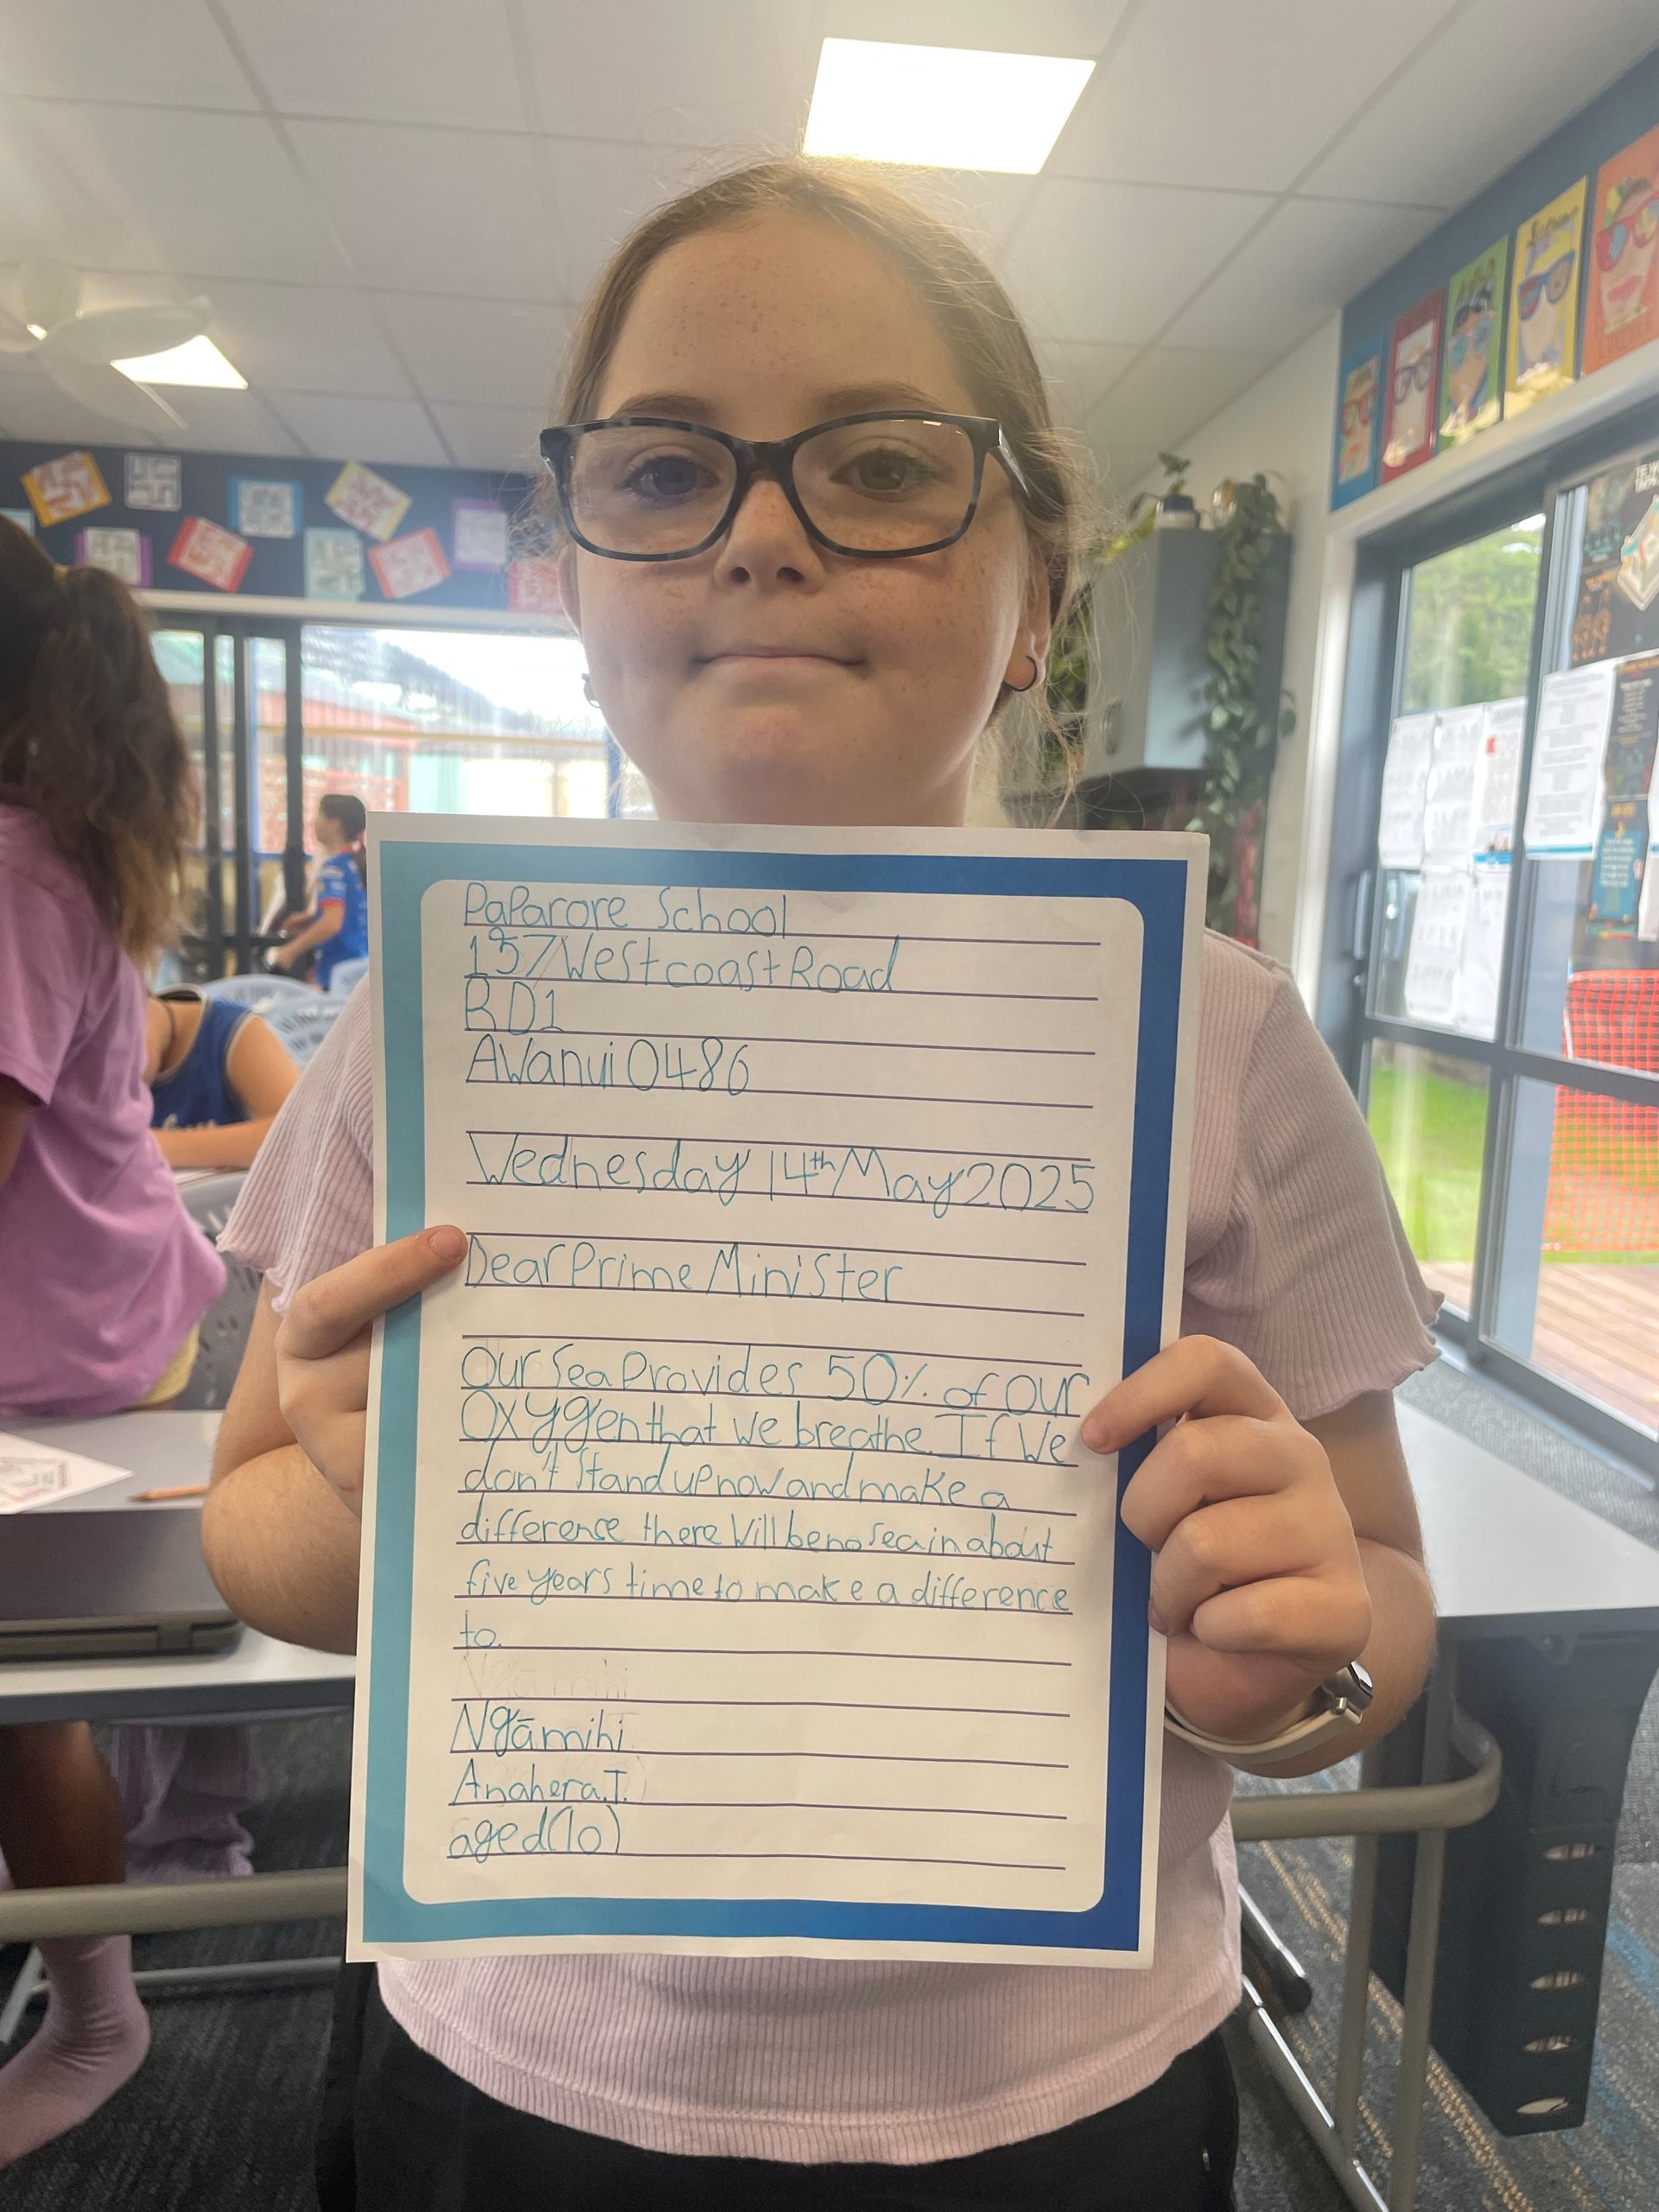 Paparore School
197 West coast Road
RD1
Awanui 0486
Wednesday 14th May 2025
Dear Prime Minister
Our sea provides 50% of our
Oxygen that we breathe. If we
don't stand up now and make a
difference there will be no sea in about
five years time to make a difference
to.
Ngāmihi
Ngāmihi
Anahera.T.
aged (10)